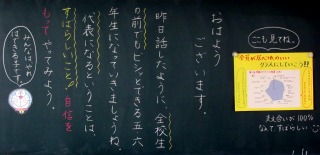 おはよう
ございます。
昨日話したように、全校生
の前でもピシッとできる五、六
年生になっていきましょうね。
代表になるということは、
すばらしいこと!自信を
もってやってみよう。
みんなはやれば
できる子です。
ここも見てね。
クラスにしていこう!!
支え合いが100%
なんて、すばらしい